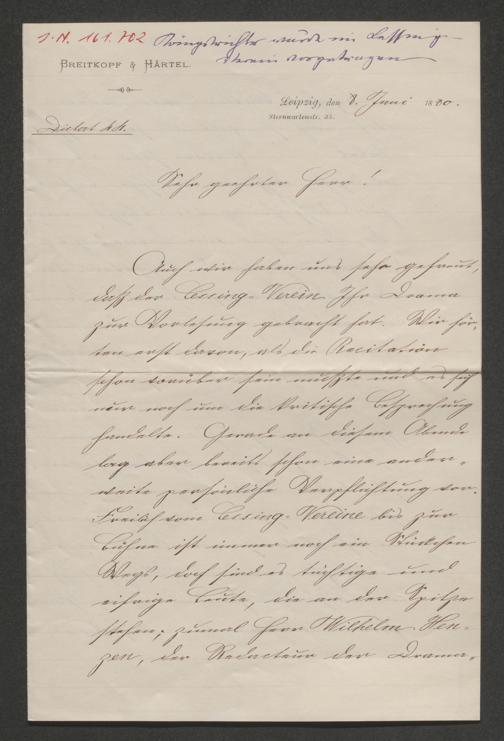 J.N. 161.702 Königsrichter wurde im Lessing-
verein vorgetragen
BREITKOPF & HÄRTEL.
Leipzig, den 8. Juni 1880.
Sternwartenstr.
Sehr geehrter Herr!
Auch wir haben uns sehr gefreut,
daß der Lessing-Verein Ihr Drama
zur Vorlesung gebracht hat. Wir hör-
ten erst davon, als die Recitation
schon vorüber sein mußte und es sich
nur noch um die kritische Besprechung
handelte. Gerade an diesem Abende
lag aber bereits schon eine ander-
weite persönliche Verpflichtung vor.
Freilich vom Lessing-Vereine bis zur
Bühne ist immer noch ein Stückchen
Wegs, doch sind es tüchtige und
eifrige Leute, die an der Spitze
stehen, zumal Herr Wilhelm Hen-
zen, der Redacteur der Drama-